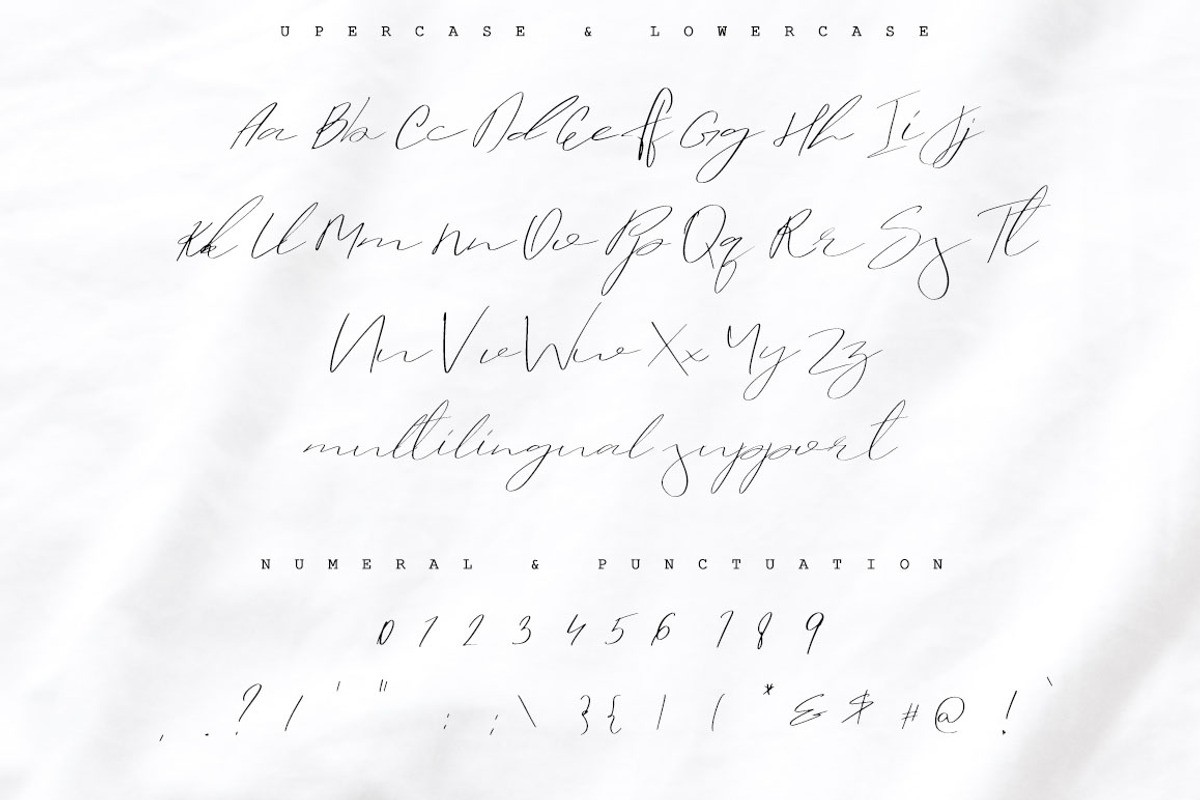 UPERCASE & LOWERCASE
Aa Bb Cc Dd Ee Ff Gg Hh Ii Jj
Kk Ll Mm Nn Oo Pp Qq Rr Ss Tt
Uu Vv Ww Xx Yy Zz
multilingual support
NUMERAL & PUNCTUATION
0 1 2 3 4 5 6 7 8 9
, . ? / ' " : ; \ } { | ( * & $ # @ ! `